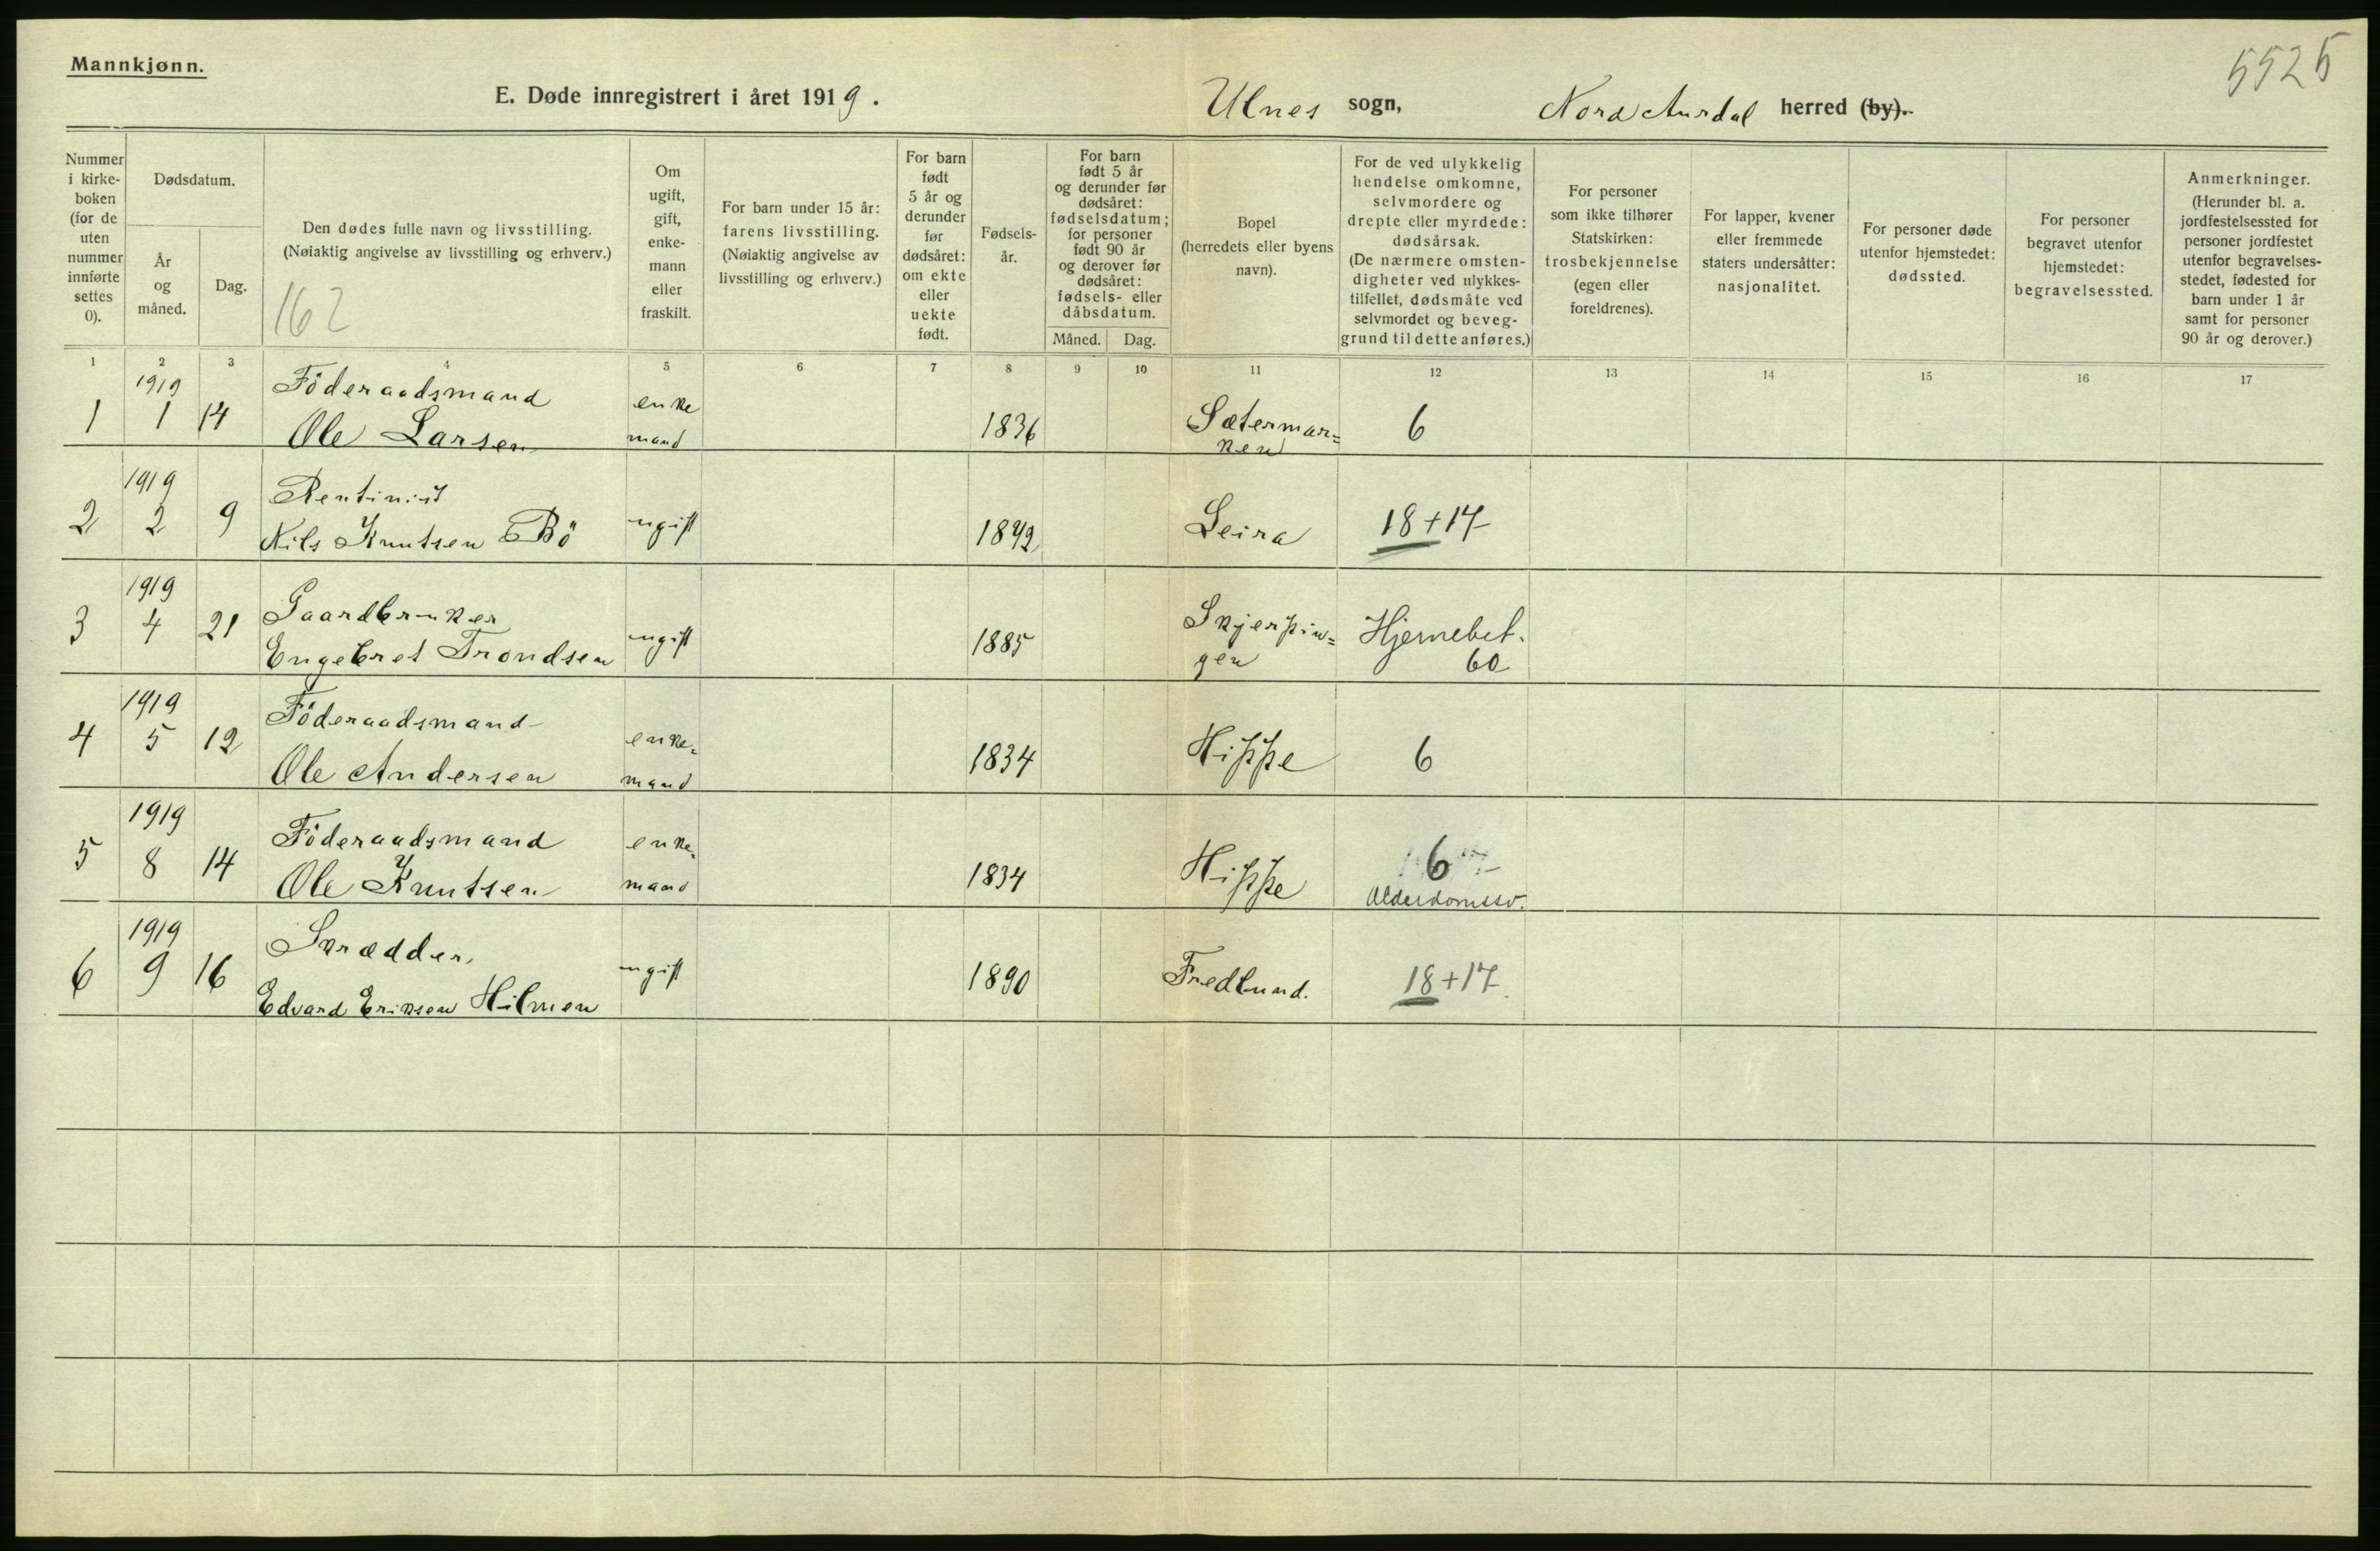 Mannkjønn.
E. Døde innregistrert i året 1919.
Ulnes sogn,
Nord Aurdal herred (by).
5525
Nummer i kirke-boken (for de uten nummer innførte settes 0).
Dødsdatum.
År og måned.
Dag.
Den dødes fulle navn og livsstilling.
(Nøiaktig angivelse av livsstilling og erhverv.)
162
Om ugift, gift, enke-mann eller fraskilt.
For barn under 15 år: farens livsstilling. (Nøiaktig angivelse av livsstilling og erhverv.)
For barn født 5 år og derunder før dødsåret: om ekte eller uekte født.
Fødsels-år.
For barn født 5 år og derunder før dødsåret: fødselsdatum; for personer født 90 år og derover før dødsåret: fødsels- eller dåbsdatum.
Måned. Dag.
Bopel (herredets eller byens navn).
For de ved ulykkelig hendelse omkomne, selvmordere og drepte eller myrdede: dødsårsak. (De nærmere omsten-digheter ved ulykkes-tilfellet, dødsmåte ved selvmordet og beveg-grund til dette anføres.)
For personer som ikke tilhører Statskirken: trosbekjennelse (egen eller foreldrenes).
For lapper, kvener eller fremmede staters undersåtter: nasjonalitet.
For personer døde utenfor hjemstedet: dødssted.
For personer begravet utenfor hjemstedet: begravelsessted.
Anmerkninger. (Herunder bl. a. jordfestelsessted for personer jordfestet utenfor begravelses-stedet, fødested for barn under 1 år samt for personer 90 år og derover.)
1 2 3 4 5 6 7 8 9 10 11 12 13 14 15 16 17
1919 Föderaadsmand enke Sætermar=
1 1 14 Ole Larsen mand 1836 ken 6
1919 Rentinist
2 2 9 Nils Knutsen Bö ugift 1842 Leira 18+17
1919 Gaardbruker Skjerpin= Hjernebet.
3 4 21 Engebret Trondsen ugift 1885 gen 60
1919 Föderaadsmand enke=
4 5 12 Ole Andersen mand 1834 Hippe 6
1919 Föderaadsmand enke= 6
5 8 14 Ole Knutsen mand 1834 Hippe Alderdomssv.
1919 Skrædder
6 9 16 Edvard Eriksen Hilmen ugift 1890 Fredlund. 18+17